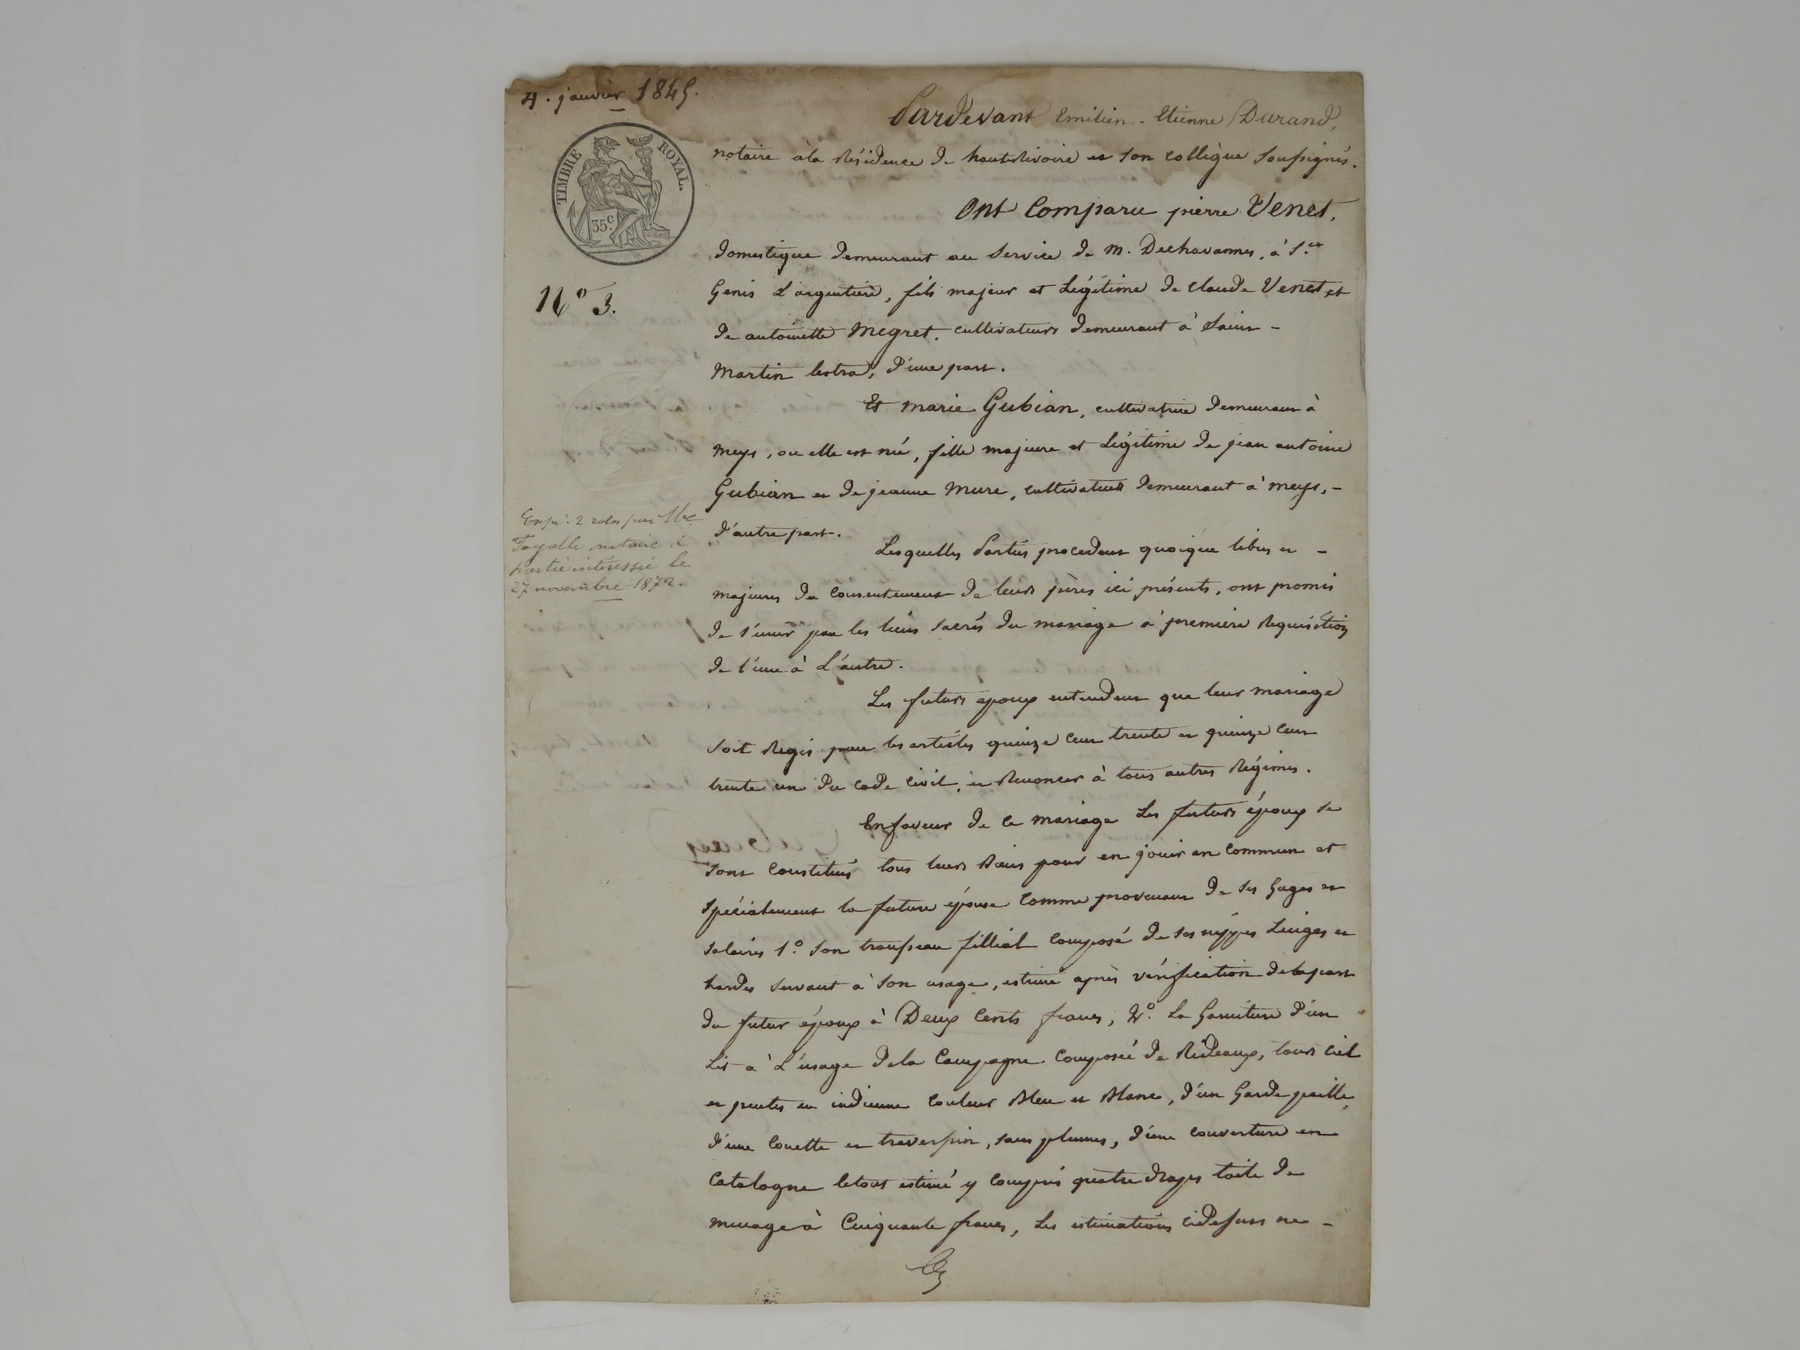 4. janvier 1845.
TIMBRE ROYAL.
35.c
No 3.
Expé. 2 roles pour Me
Fayolle notaire à
partie intéressée le
27 novembre 1872.
Pardevant Emilien-Etienne Durand,
notaire à la Résidence de hauteRivoire et son collègue Soussignés.
Ont Comparu pierre Venet,
domestique demeurant au Service de m. Dechavannes, à St.
Genis L'argentiere, fils majeur et Légitime de Claude Venet et
de antoinette Megret, cultivateurs demeurant à Saint-
Martin lestra, d'une part.
Et marie Gubian, cultivatrice demeurant à
meys, ou elle est née, fille majeure et Légitime de jean antoine
Gubian et de jeanne Mure, cultivateurs demeurant à meys,-
d'autre part.
Lesquelles Parties procedant quoique libres et -
majeures du Consentement de leurs pères ici présents, ont promis
de s'unir par les liens sacrés du mariage à première Requisition
de l'une à L'autre.
Les futurs epoux entendent que leur mariage
soit Regis par les articles quinze Cent trente et quinze Cent
trente un du code Civil, et Renoncer à tous autres Régimes.
En faveur de ce mariage Les futurs époux se
sont Constitués tous leurs Biens pour en jouir en Commun et
spécialement la future épouse Comme provenant de ses Gages et
salaires 1o. Son trousseau fillial Composé de ses nippes Linges et
hardes servant à son usage, estimé après vérification de la part
du futur époux à Deux Cents francs, 2o. La Garniture d'un
Lit à L'usage de la Campagne Composée de Rideaux, tours Ciel
et pentes en indienne Couleur Bleu et Blanc, d'un Garde paille,
d'une Couette et traversin, sans plumes, d'une couverture en
Catalogne le tout estimé y Compris quatre draps toile de
menage à Cinquante francs, Les estimations cidessus ne -